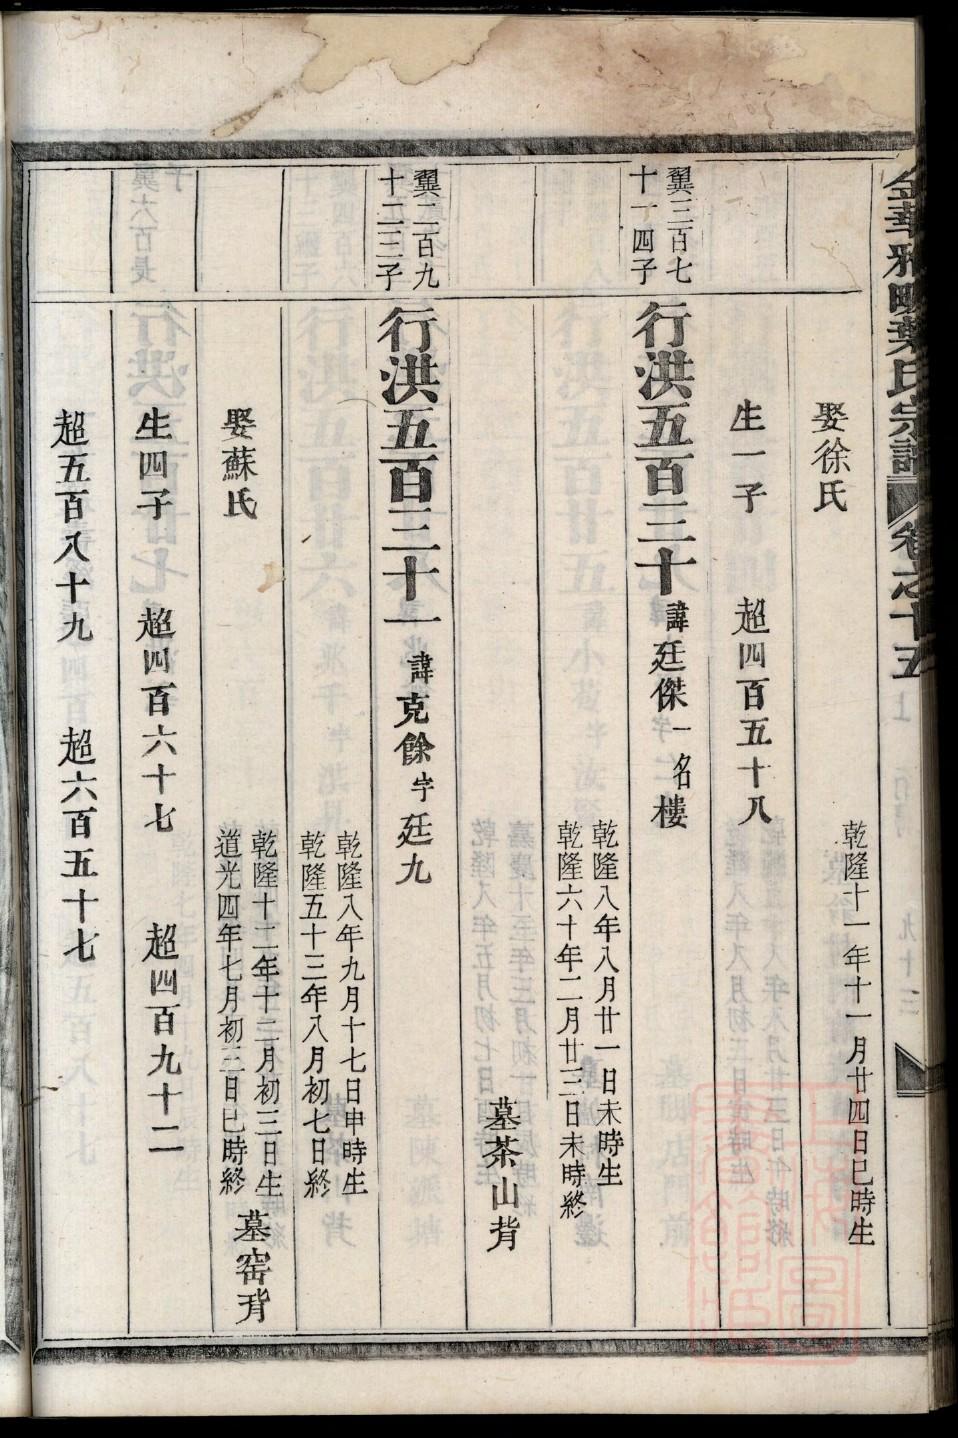 金華雅畈葉氏宗譜 卷之十五
娶徐氏
乾隆十一年十一月廿四日巳時生
生一子 超四百五十八
翼三百七
十一四子
行洪五百三十 諱廷傑一名樓
乾隆八年八月廿一日未時生
乾隆六十年二月廿三日未時終
墓茶山背
翼二百九
十二三子
行洪五百三十一 諱克餘字廷九
乾隆八年九月十七日申時生
乾隆五十三年八月初七日終
娶蘇氏
乾隆十二年十二月初三日生
道光四年七月初三日巳時終
墓窑背
生四子 超四百六十七 超四百九十二
超五百八十九 超六百五十七